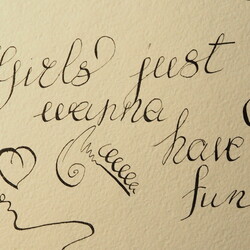 Girls just
wanna
have
fun